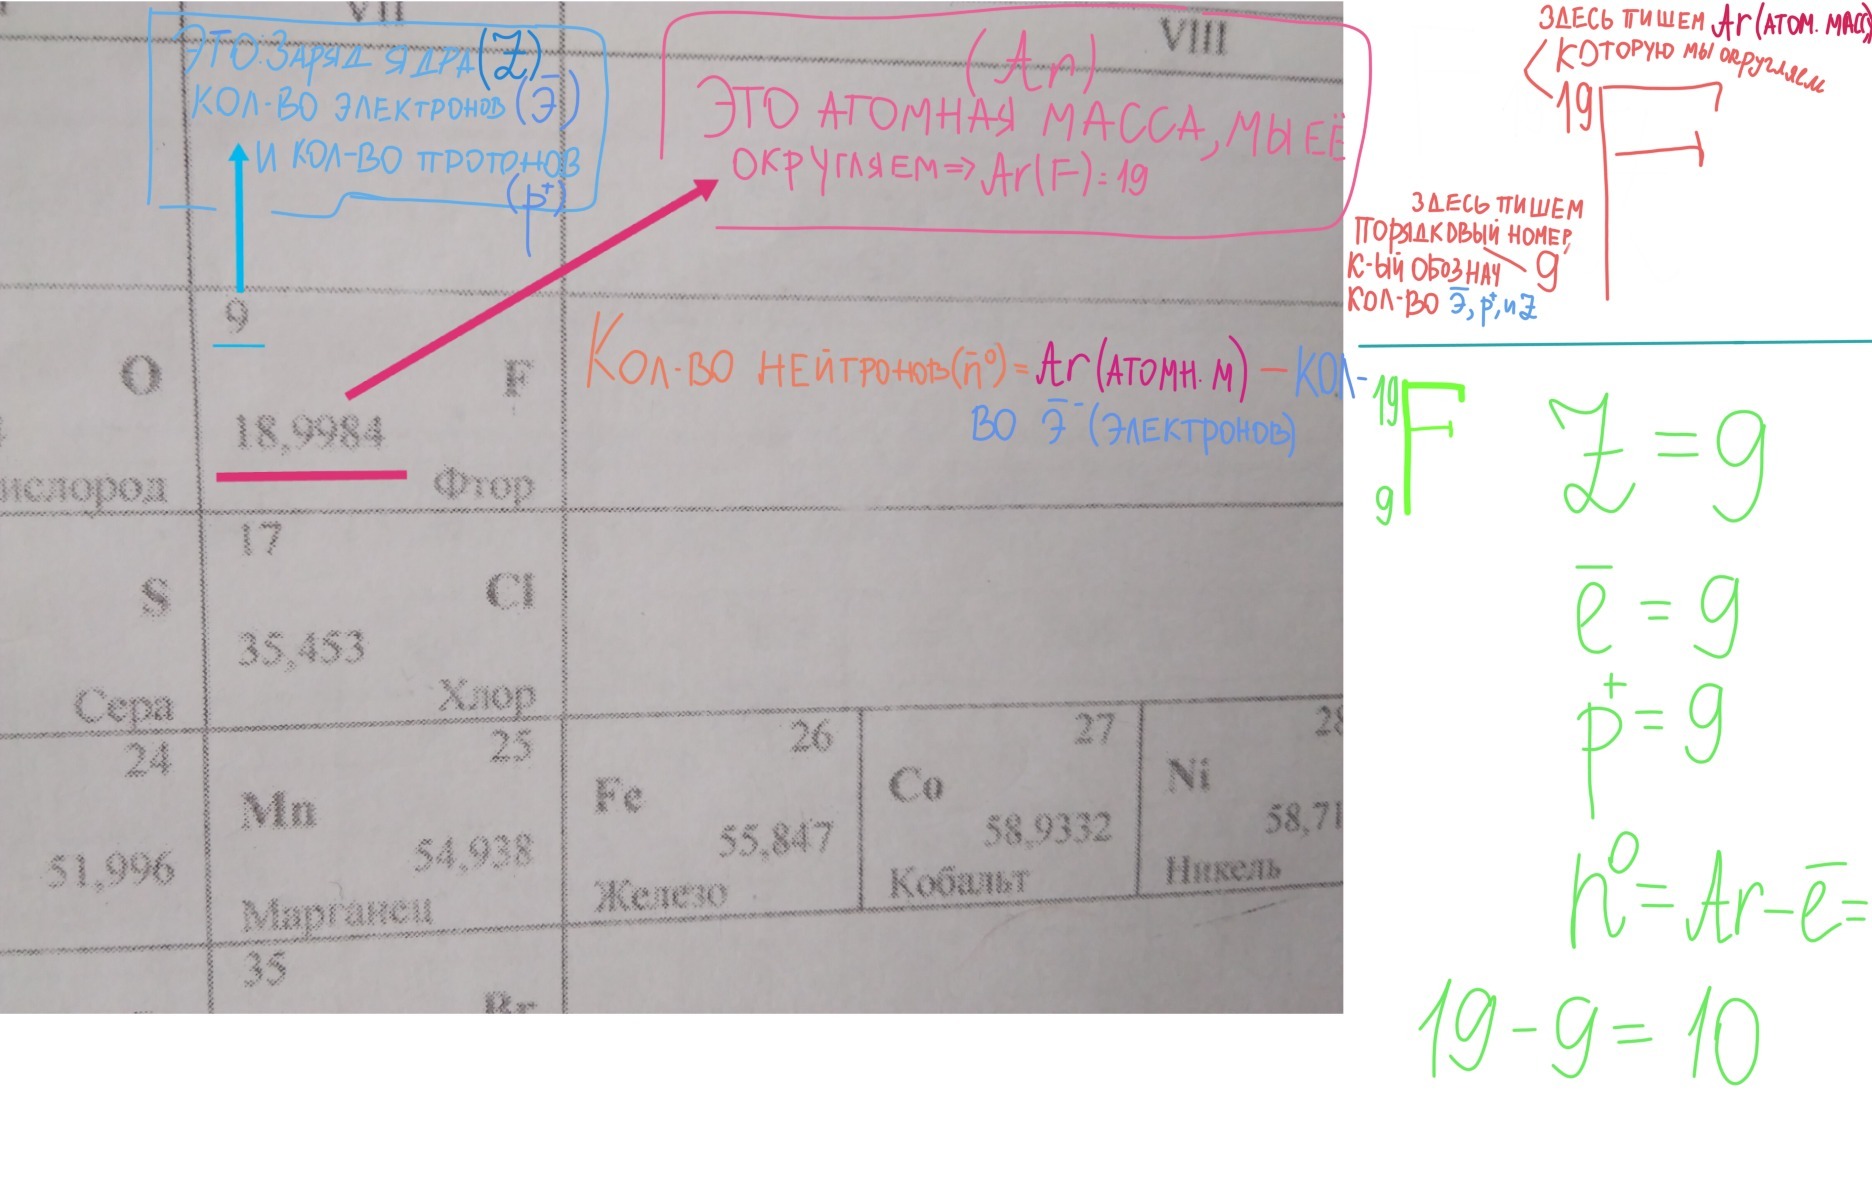 VII
VIII
ЭТО: ЗАРЯД ЯДРА (Z)
КОЛ-ВО ЭЛЕКТРОНОВ (Э̄)
И КОЛ-ВО ПРОТОНОВ
(p⁺)
(Ar)
ЭТО АТОМНАЯ МАССА, МЫ ЕЁ
ОКРУГЛЯЕМ => Ar(F) = 19
ЗДЕСЬ ПИШЕМ Ar (АТОМ. МАСС)
КОТОРУЮ МЫ ОКРУГЛЯЕМ
19
F
ЗДЕСЬ ПИШЕМ
ПОРЯДКОВЫЙ НОМЕР,
К-ЫЙ ОБОЗНАЧ 9
КОЛ-ВО Э̄, p⁺, и Z
9
O F
18,9984
ислород Фтор
КОЛ-ВО НЕЙТРОНОВ (n̄⁰) = Ar (АТОМН. М) – КОЛ-
ВО Э̄⁻ (ЭЛЕКТРОНОВ)
17
S Cl
35,453
Сера Хлор
24 25 26 27 28
Mn Fe Co Ni
51,996 54,938 55,847 58,9332 58,71
Марганец Железо Кобальт Никель
35
Br
19
F
9
Z = 9
ē = 9
p⁺ = 9
n⁰ = Ar – ē =
19 – 9 = 10